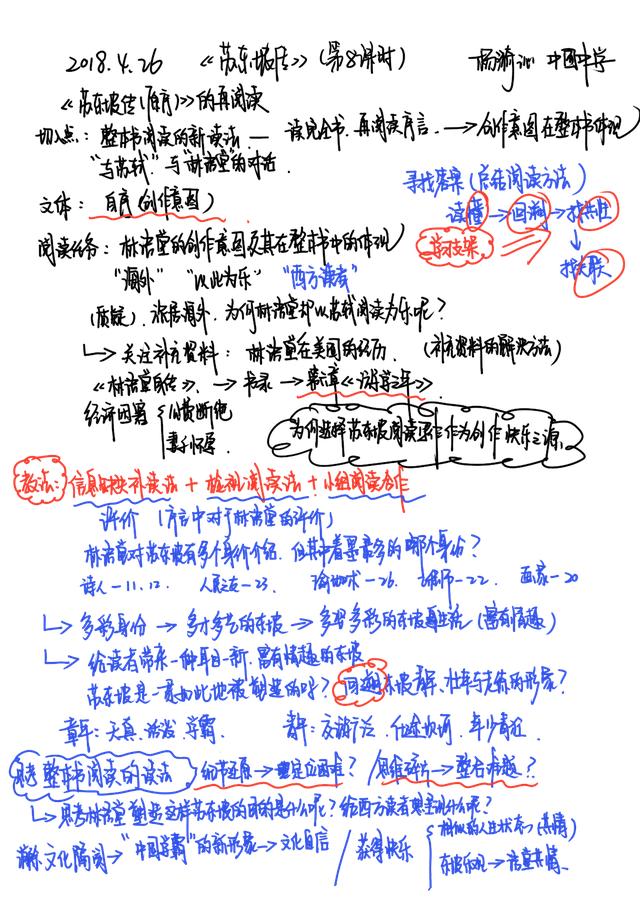 2018.4.26 《苏东坡传》(第8课时) 中学
《苏东坡传(自序)》的再阅读
切入点：整本书阅读的新读法 — 读完全书，再阅读序言，→创作意图在整本书体现
"与苏轼"与"林语堂"的对话
寻找答案(总结阅读方法)
文体：自序(创作意图)
读懂→回溯→找共性
学习支架
阅读任务：林语堂的创作意图及其在整本书中的体现
找关联
"海外" "以此为乐" "西方读者"
(质疑)．旅居海外，为何林语堂却以苏轼阅读为乐呢？
↳关注补充资料：林语堂在美国的经历．(补充资料的解决方法)
《林语堂自传》、→目录→第章《游学之年》．
经济因窘 断绝
妻子怀孕．
为何选择苏东坡阅读还作为创作快乐之源．
教法：信息缺失补读法＋检视阅读法＋小组阅读合作
评价 (序言中对于林语堂的评价)
林语堂对苏东坡有多个身份介绍，但其中着墨最多的哪个身份？
诗人—11.12． 人民之友—23． 瑜伽术—26． —22． 画家—20
↳多彩身份→多才多艺的东坡→多姿多彩的东坡生活(富有情趣)
↳给读者带来一种耳目一新，富有情趣的东坡
苏东坡是一意如此地被制造的吗？回溯东坡青年、壮年与老年的形象？
童年：天真、活泼、学霸． 青年：交游广泛、仕途坎坷、年少青狂．
思考整本书阅读的读法 细节还原→ 思维碎片→整合难题？
↳思考林语堂塑造这样苏东坡的目的是什么呢？给西方读者想呈现什么呢？
文化隔阂→"中国学霸"的新形象→文化自信 / 获得快乐
相似的人生状态→(共情)
东坡乐观→语堂共情．